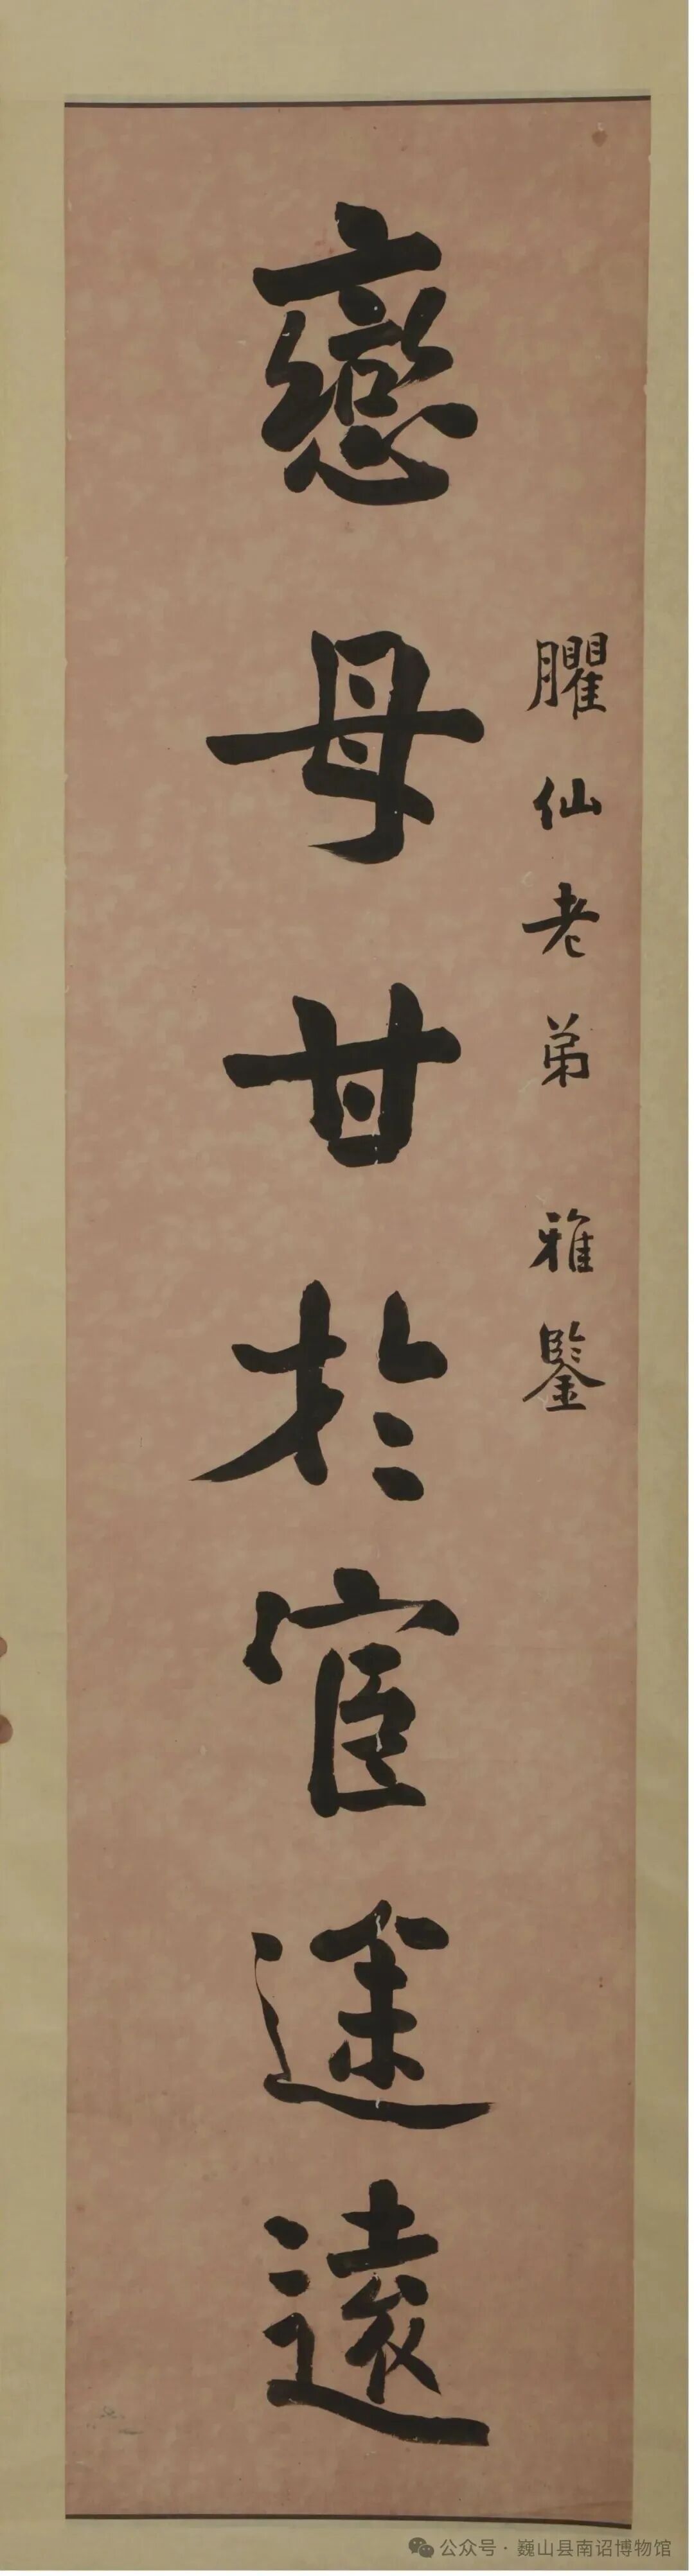 臞仙老弟 雅鑒
戀母甘於宦途遠
公众号·巍山县南诏博物馆